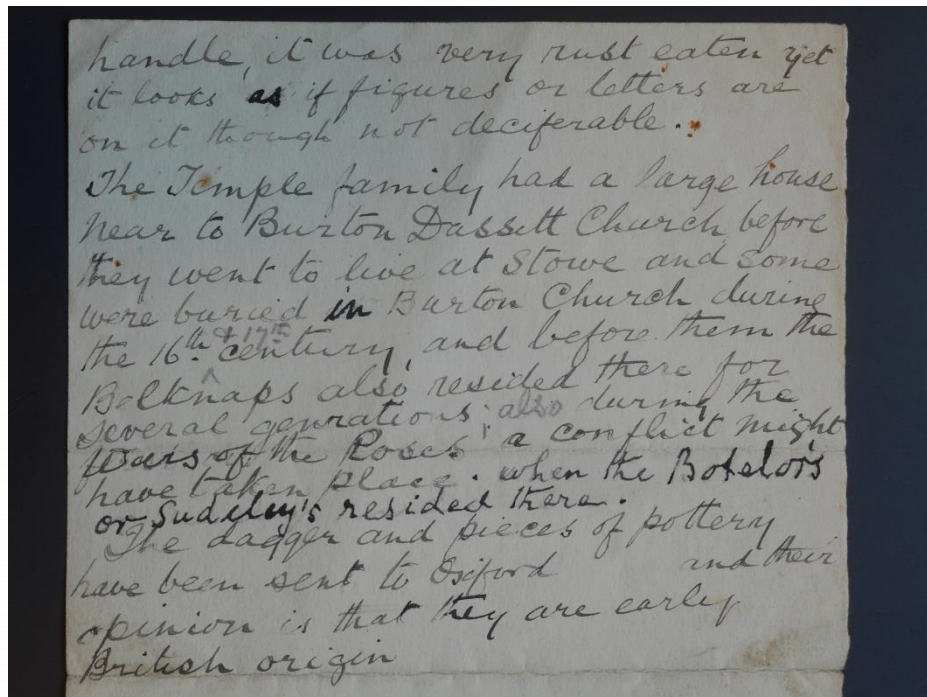 handle, it was very rust eaten yet
it looks as if figures or letters are
on it though not deciferable.
The Temple family had a large house
near to Burton Dassett Church, before
they went to live at Stowe and some
were buried in Burton Church during
the 16th & 17th century, and before them the
Belknaps also resided there for
several genrations; also during the
Wars of the Roses a conflict might
have taken place. when the Botelor's
or Sudeley's resided there.
The dagger and pieces of pottery
have been sent to Oxford and their
opinion is that they are early
British origin